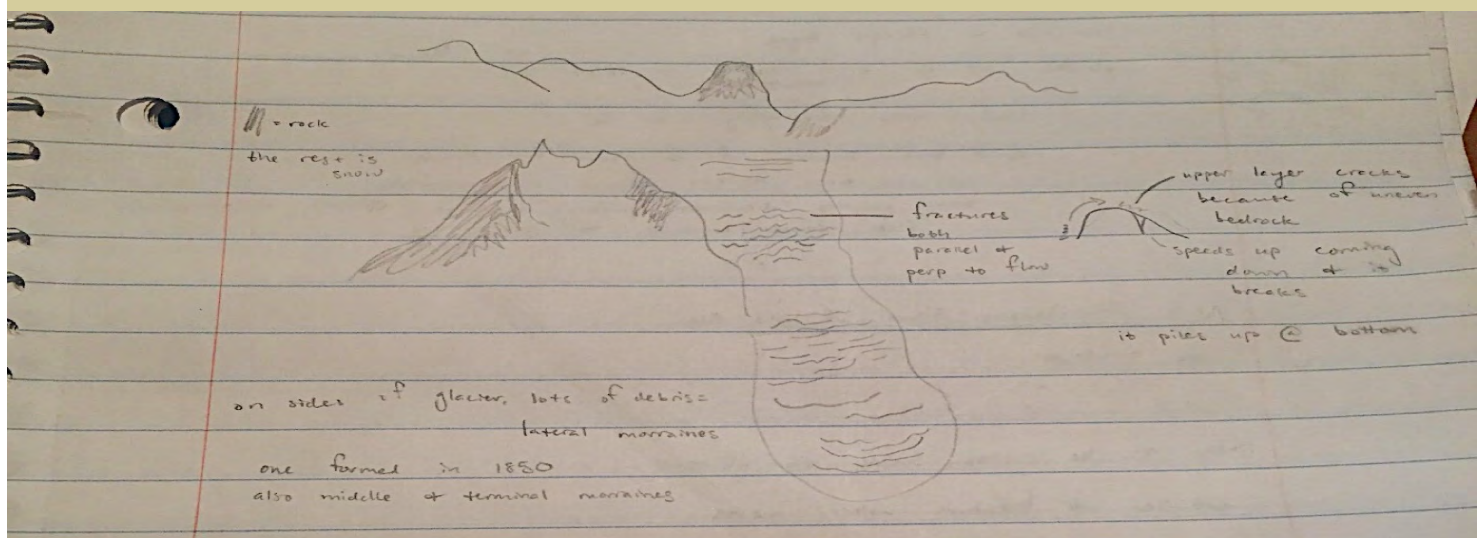 = rock
the rest is
snow
fractures
both
parallel +
perp to flow
upper layer cracks
because of uneven
bedrock
speeds up coming
down + it
breaks
it piles up @ bottom
on sides of glacier, lots of debris =
lateral morraines
one formed in 1850
also middle + terminal morraines